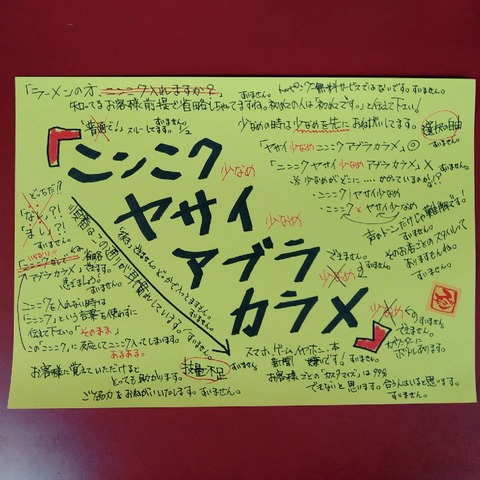 「ラーメンの方、ニンニク入れますか?」すいません。
知ってるお客様前提で省略しちゃてますね。初めての人は「初めてです。」と伝えて下さい!
「普通で。」スルーしてます。
すいません。
トッピング無料サービスではないです。すいません。
少なめの時は少なめを先におねがいしてます。
選択の自由
すいません。
「ヤサイ少なめニンニクアブラカラメ」◎
「ニンニクヤサイ少なめアブラカラメ」×
※少なめがどこに……かかっているのか!!?
・ニンニク|ヤサイ少なめ
・ニンニク ヤサイ少なめ
声のトーンだけじゃ難解です!
すいません。
そのお店ごとのスタイルって
ありますからね。
すいません。
『ニンニク少なめ
ヤサイ少なめ
アブラ少なめ
カラメ少なめ』
どっちだ!?
「なし」?!
「まし」?!
すいません。
「ニンニクなしで」は
アブラカラメ」
すいません。
ニンニクを入れない時は
「ニンニク」という言葉を使わずに
伝えて下さい。「そのまま」
この「ニンニク」に反応してニンニク入ってしまいます。
あるある。
お客様に覚えていただけると
とっても助かります。
ご協力をおねがいいたします。すいません。
技量不足
すいません。
できません。
すいません。
できません。
カラメは
ボトルあります。
スマホ、ゲーム、イヤホン、本
新聞 嫌いです!すいません。
お客様ごとの「カスタマイズ」は99%
できないと思います。合う人はいると思います。
すいません。